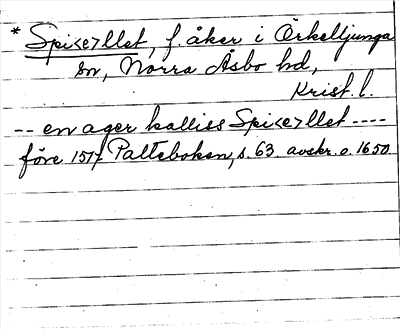 * Spic<e>llet, f. åker i Örkelljunga
sn, Norra Åsbo hd,
Krist. l.
-- en ager kalliss Spic<e>llet ----
före 1517 Palteboken, s. 63 avskr. o. 1650